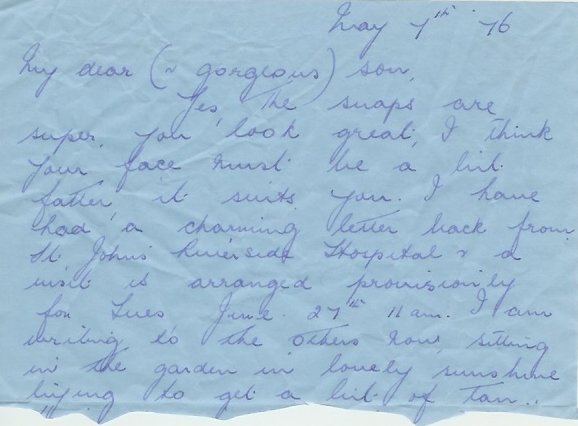 May 7th 76
My dear (& gorgeous) son,
Yes, the snaps are
super, you look great, I think
your face must be a bit
fatter it suits you. I have
had a charming letter back from
St Johns Riverside Hospital & a
visit is arranged provisionly
for Tues June 27th 11 am. I am
writing to the others now, sitting
in the garden in lovely sunshine
trying to get a bit of tan..